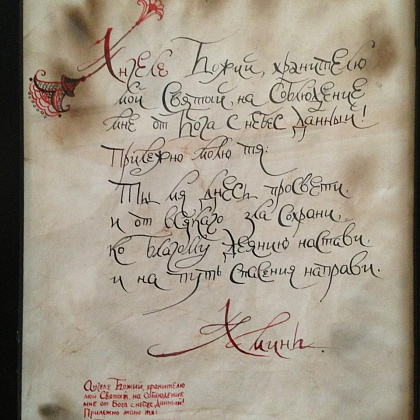 Ангеле Божий, хранителю
мой Святый, на Соблюдение
мне от Бога с небес Данный!
Прилежно молю тя:
Ты мя днесь просвети,
и от всякаго зла Сохрани,
ко благому Деянию настави,
и на путь Спасения направи.
Аминь.
Ангеле Божий, хранителю
мой Святый, на Соблюдение
мне от Бога с небес Данный!
Прилежно молю тя: